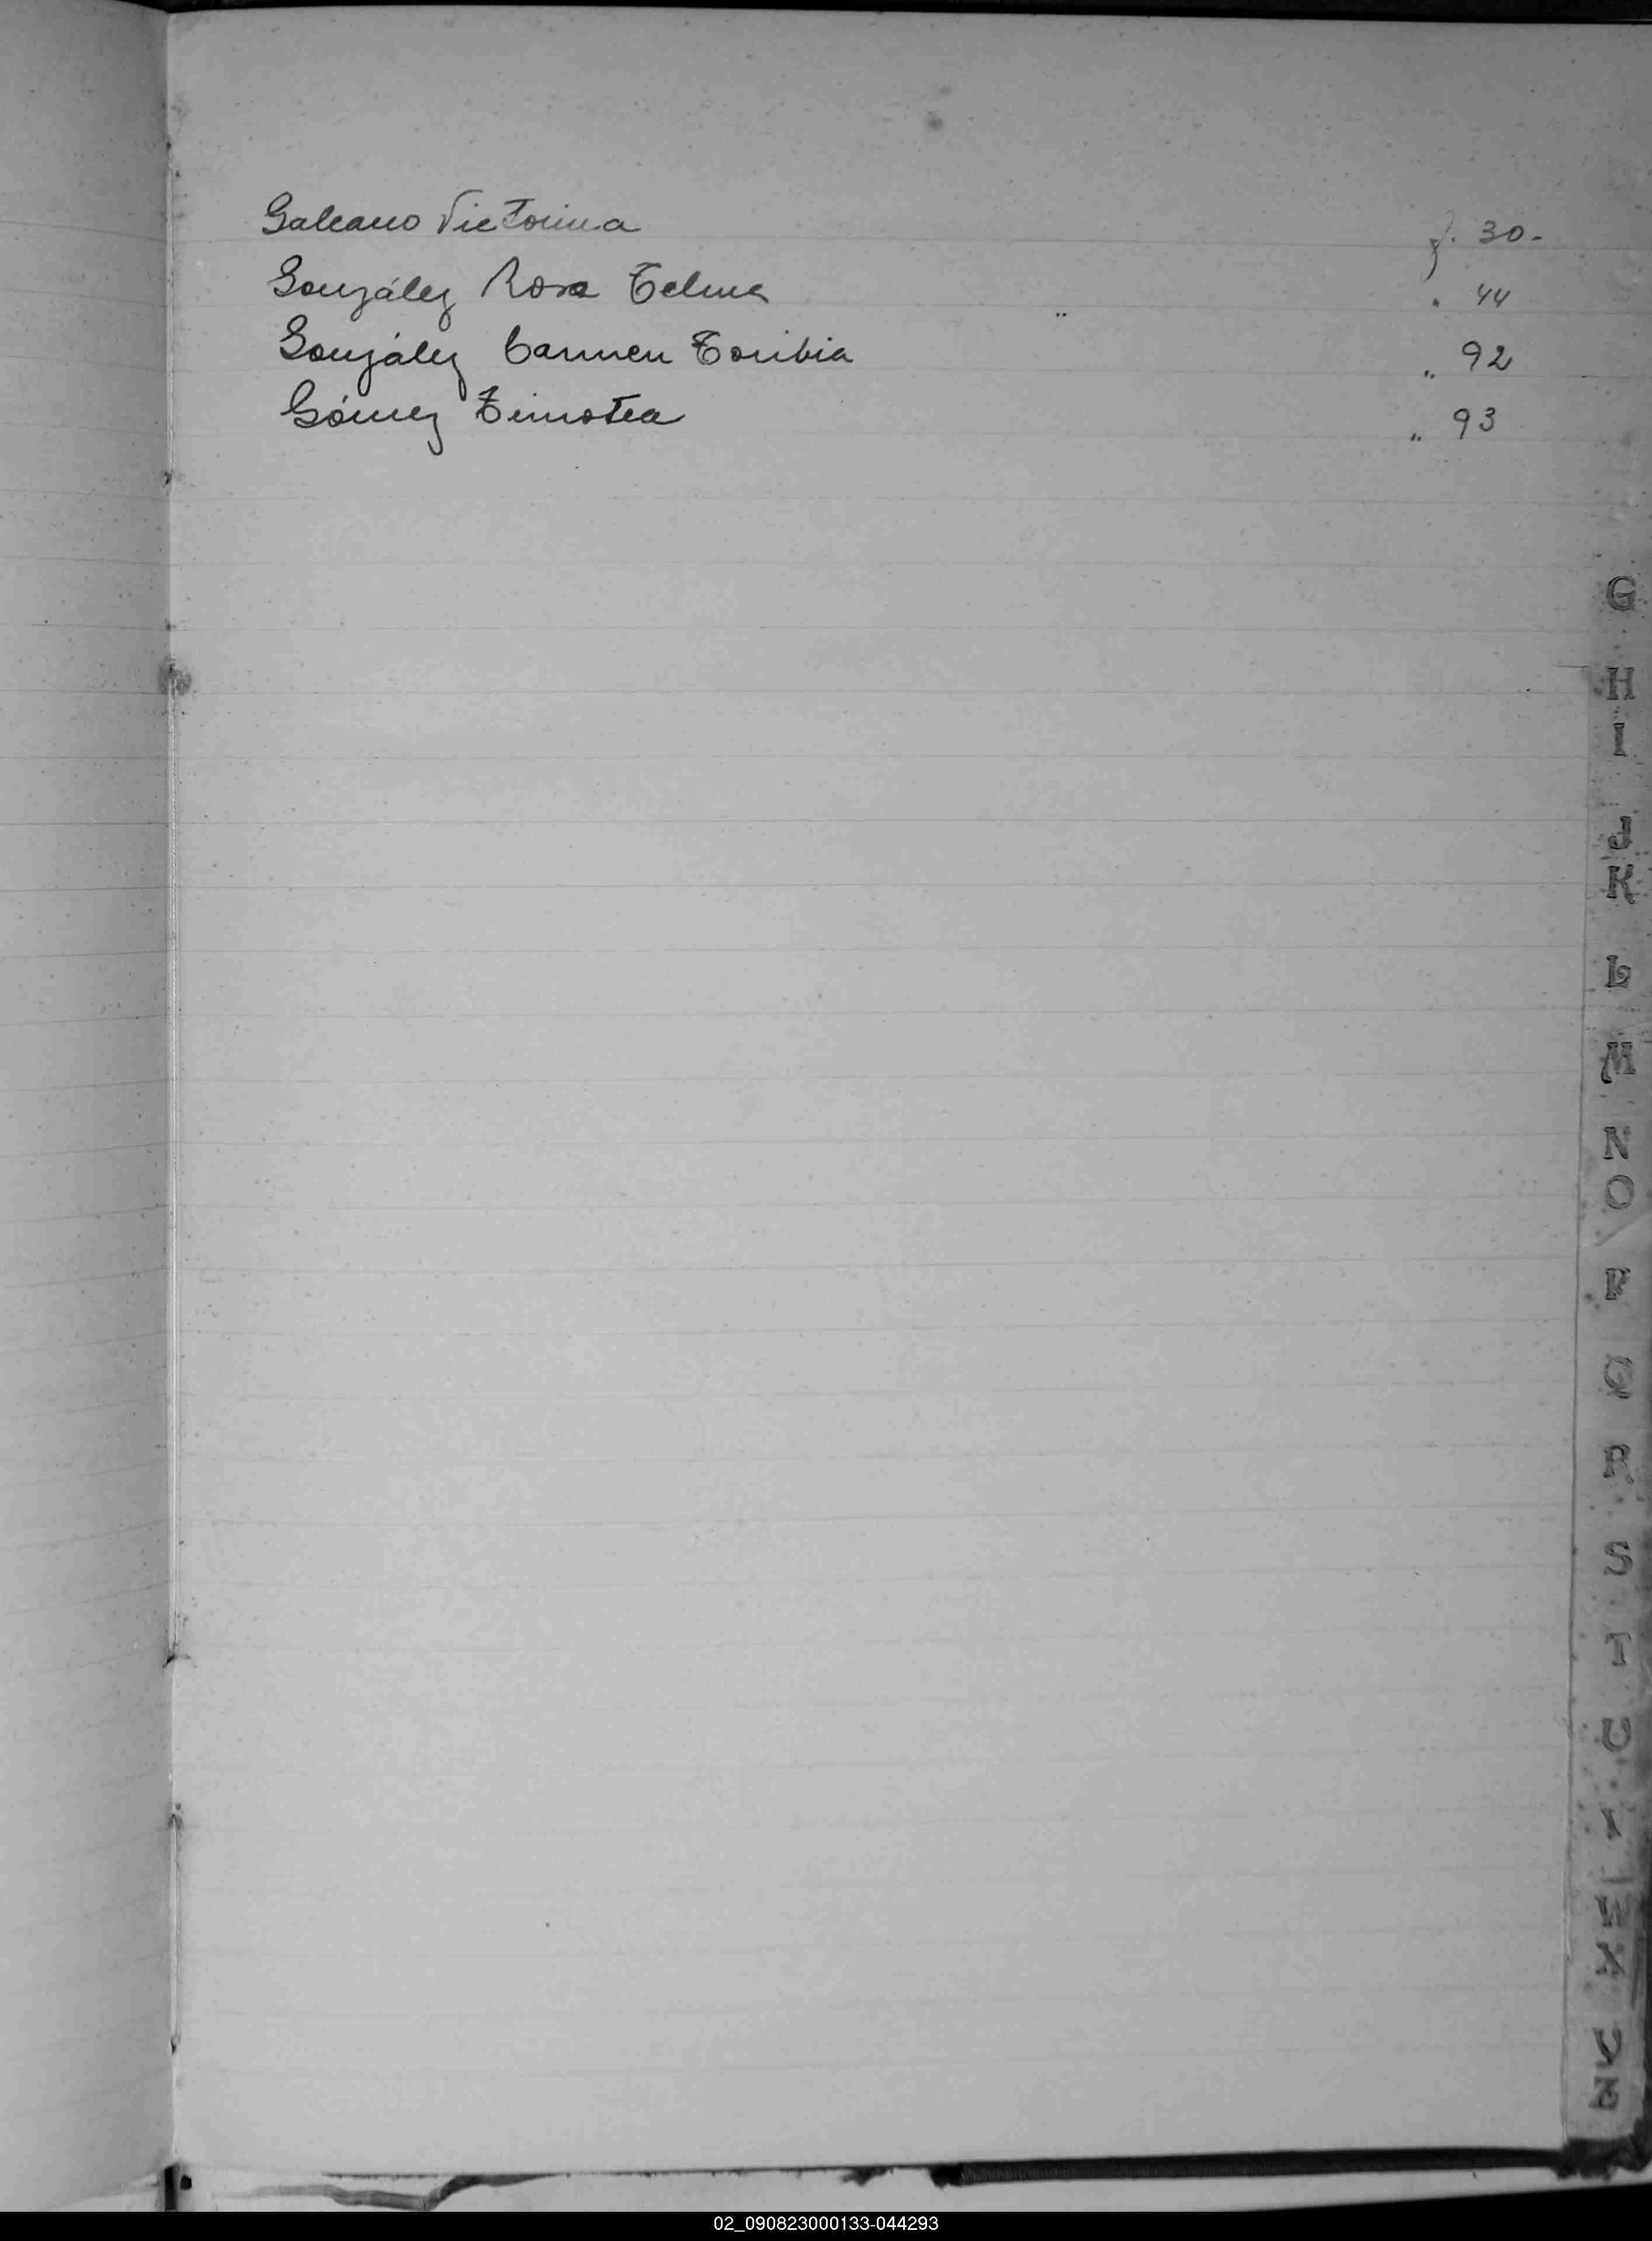 Galeano Victorina f. 30-
González Rosa Telma " 44
González Carmen Toribia " 92
Gómez Timotea " 93
G
H
I
J
K
L
M
N
O
P
Q
R
S
T
U
V
W
X
Y
Z
02_090823000133-044293